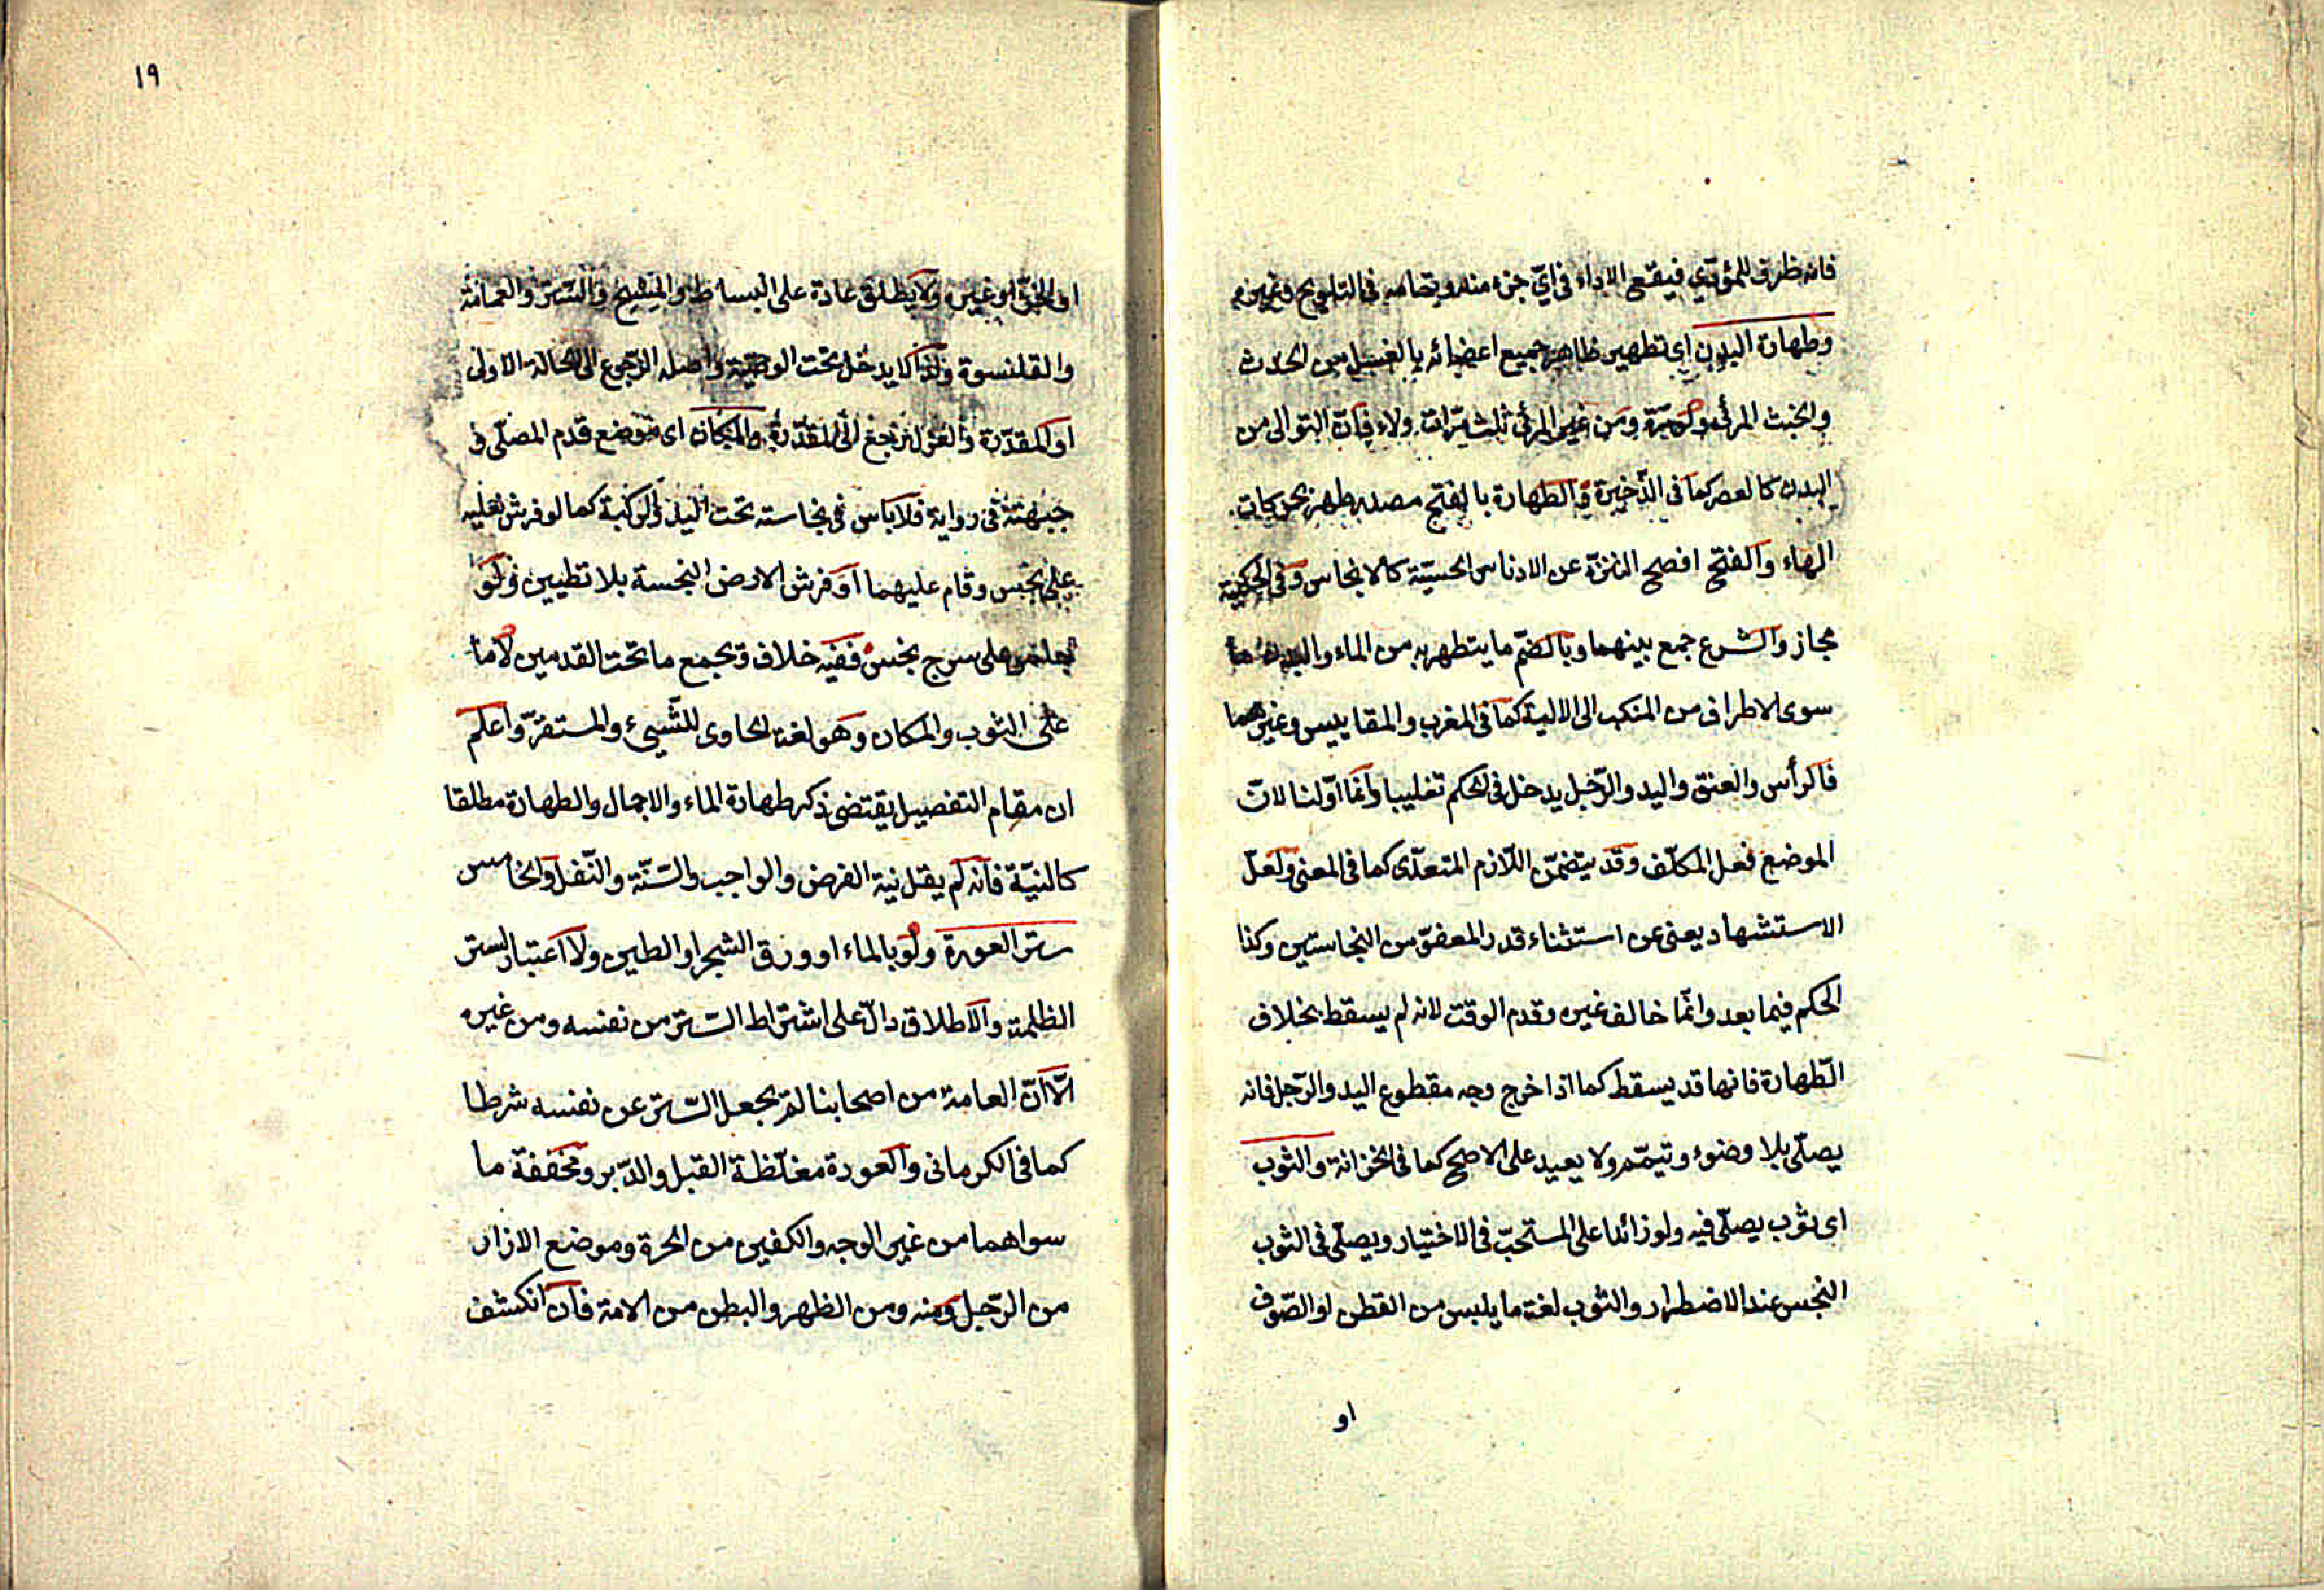 فانه ظرف للمؤدّي فيقع الاداء في ايّ جزء منه وتمامه في التلويح وغيره
وطهارة البدن اي تطهير ظاهر جميع اعضائه بالغسل من الحدث
والخبث المرئي ولو مرّة ومن غير المرئي ثلث مرّات ولاء فانّ التوالي من
البدن كالعصر كما في الذّخيرة فالطهارة بالفتح مصدر طهر بحركات
الهاء والفتح افصح التنزّه عن الادناس الحسيّة كالانجاس وفي الحكمية
مجاز والشرع جمع بينهما وبالضمّ ما يتطهر به من الماء والبدن ما
سوى الاطراف من المنكب الى الالية كما في المغرب والمقاييس وغيرهما
فالرأس والعنق واليد والرّجل يدخل في الحكم تغليبا وانما اوّلنا لانّ
الموضع فعل المكلّف وقد يتضمّن اللّازم المتعدّى كما في المعنى ولعلّ
الاستشهاد يعنى عن استثناء قدر المعفوّ من النجاستين وكذا
الحكم فيما بعد وانّما خالف غيره وقدم الوقت لانه لم يسقط بخلاف
الطّهارة فانها قد يسقط كما اذا خرج وجه مقطوع اليد والرّجل فانه
يصلّى بلا وضوء وتيمّم ولا يعيد على الاصح كما في الخزانة والثوب
اى ثوب يصلّى فيه ولو زائدا على المستحبّ في الاختيار ويصلّى في الثوب
النجس عند الاضطرار والثوب لغة ما يلبس من القطن او الصّوف
او
١٩
او الخزّ او غيره ولا يطلق عادة على البساط والمسح والستر والعمامة
والقلنسوة ولذا لا يدخل تحت الوصيّة واصله الرّجوع الى الحالة الاولى
او المقدّرة والغزل يرجع الى المقدّرة والمكان اى موضع قدم المصلّى و
جبهته في رواية فلا باس في نجاسته تحت اليد والركبة كما لو فرش نعليه
على نجس وقام عليهما او فرش الارض النجسة بلا تطيين ولو
على سرج نجس ففيه خلاف ويجمع ما تحت القدمين لا ما
على الثوب والمكان وهو لغة الحاوى للشّيء والمستقرّ واعلم
ان مقام التفصيل يقتضى ذكر طهارة الماء والاجمال والطهارة مطلقا
كالنيّة فانه لم يقل نية الفرض والواجب والسّنّة والنّفل والخامس
ستر العورة ولو بالماء او ورق الشجر او الطين ولا اعتبار لستر
الظلمة والاطلاق دالّ على اشتراط السّتر من نفسه ومن غيره
الّا انّ العامة من اصحابنا لم يجعل السّتر عن نفسه شرطا
كما في الكرمانى والعورة مغلّظة القبل والدّبر ومخففة ما
سواهما من غير الوجه والكفين من الحرة وموضع الازار
من الرّجل ومنه ومن الظهر والبطن من الامة فان انكشف